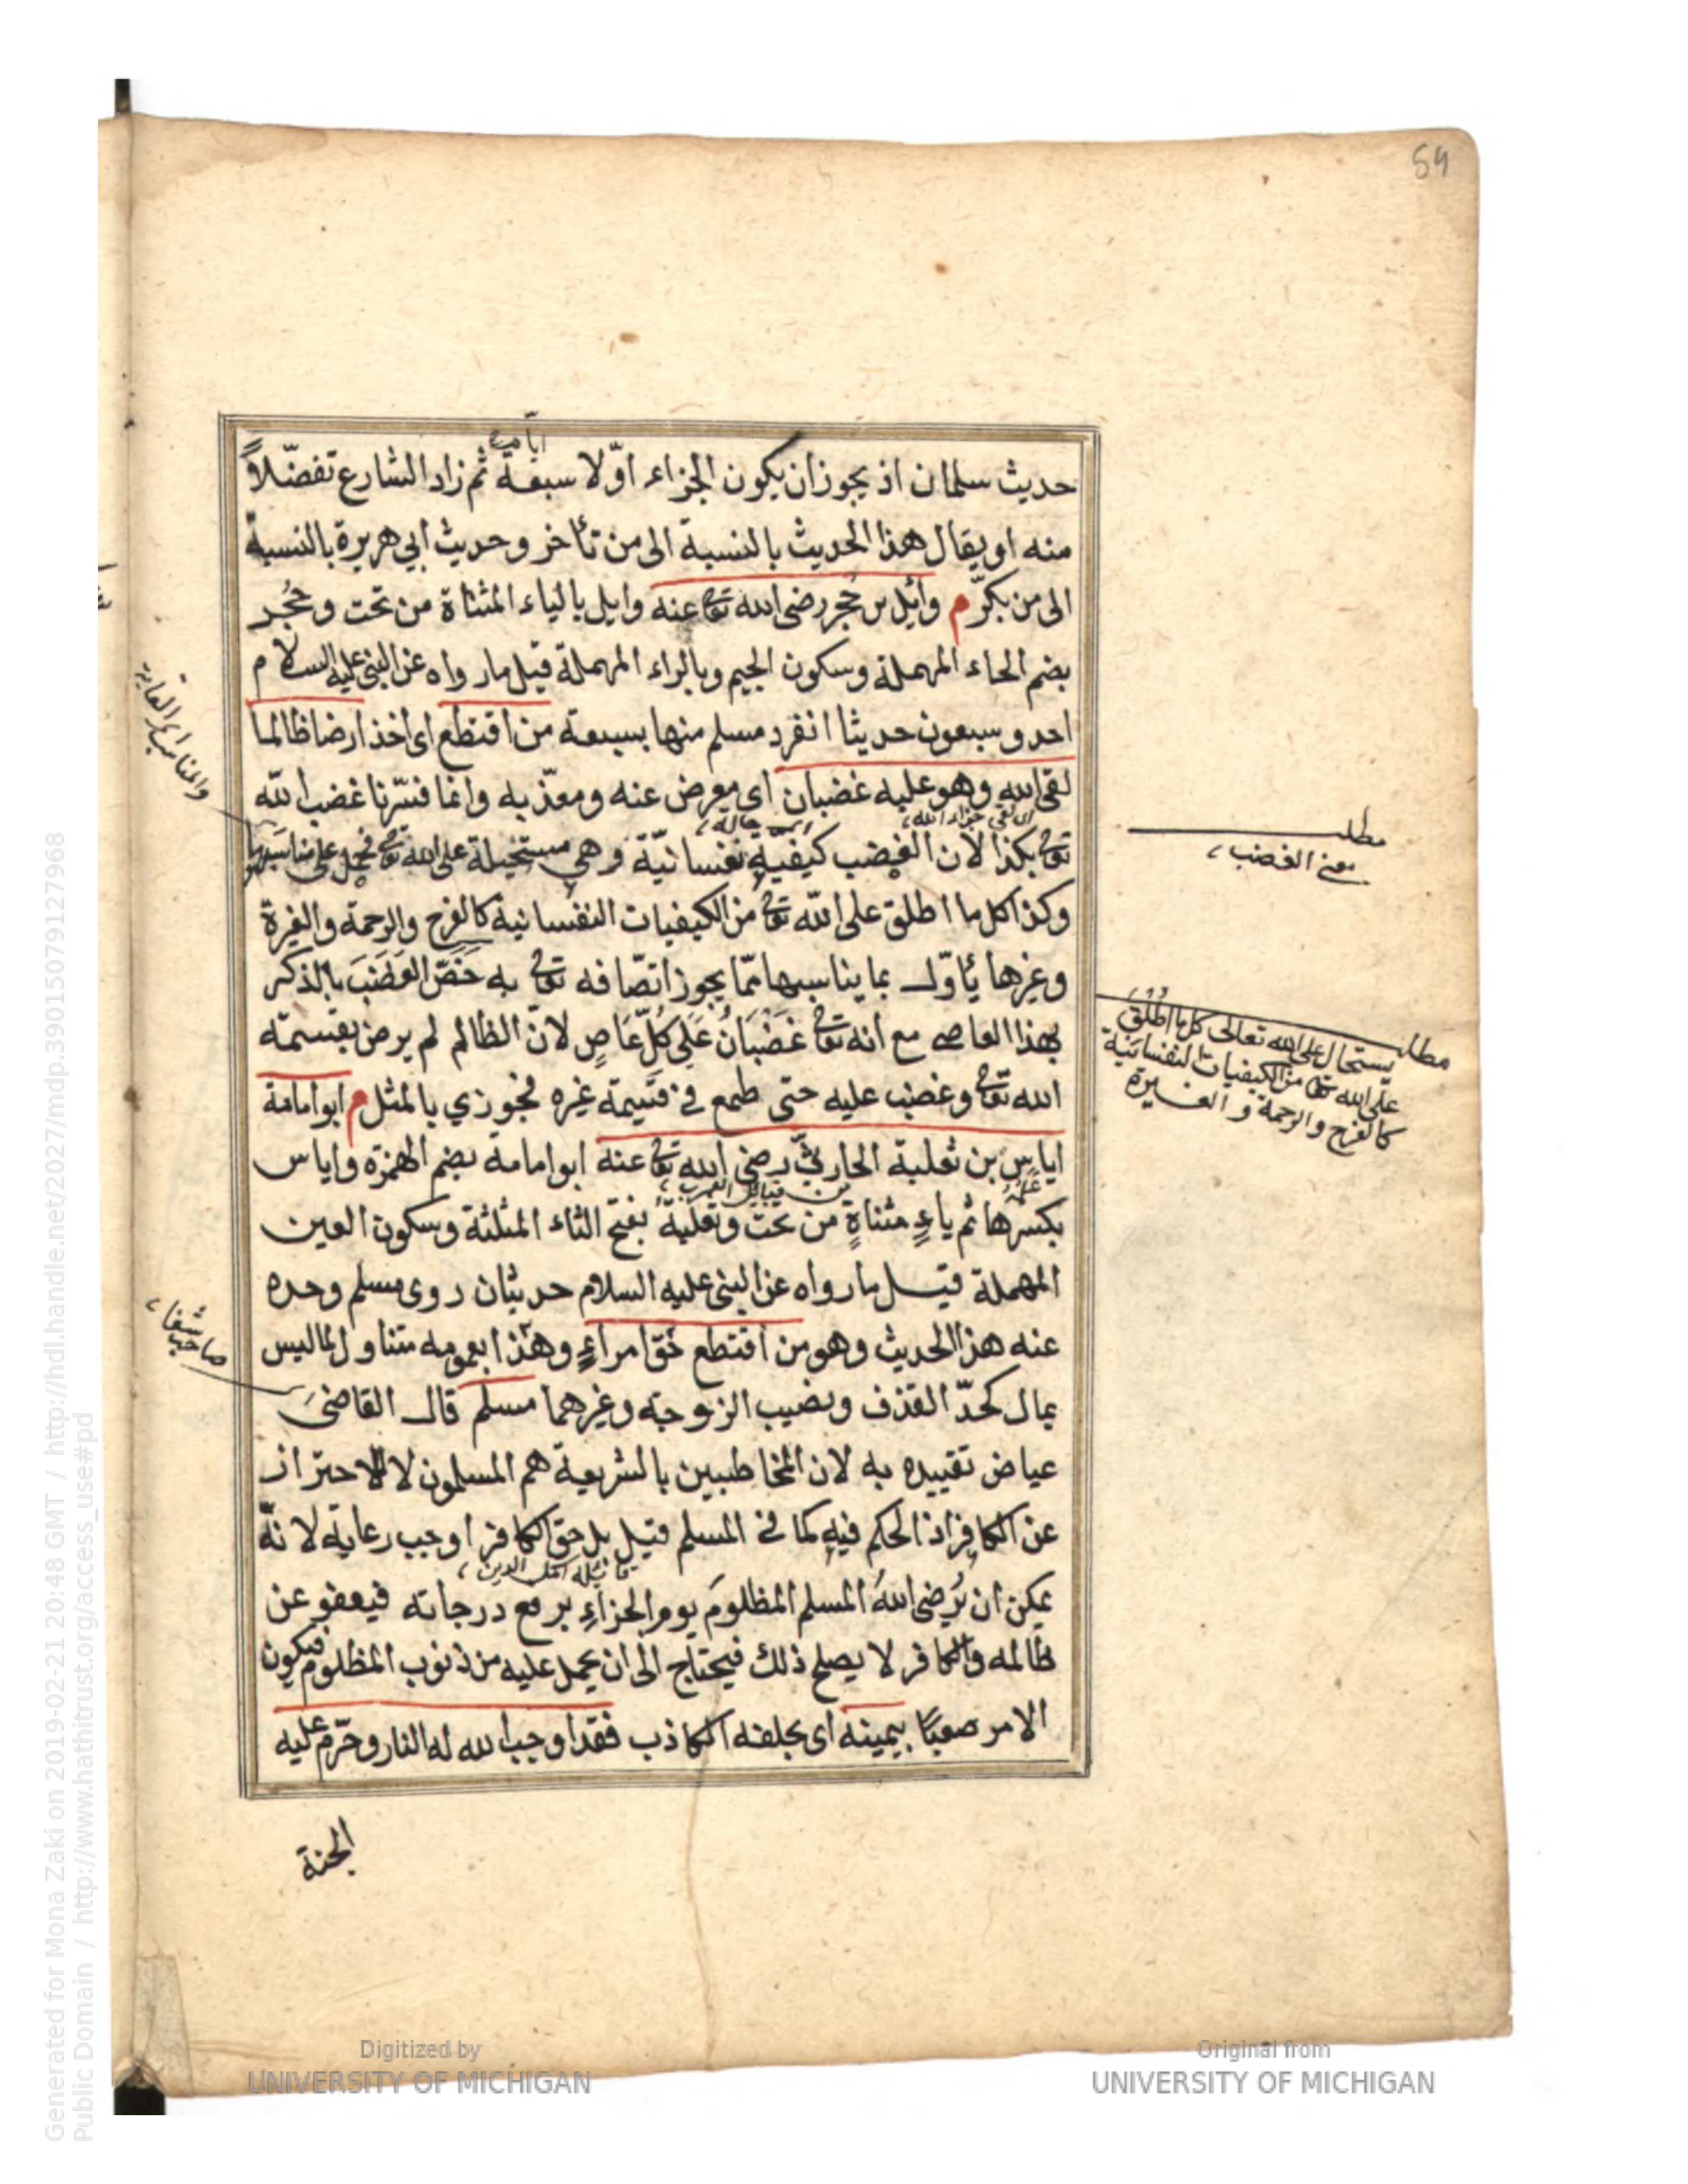 59
ايام
حديث سلمان اذ يجوز ان يكون الجزاء اوّلا سبعة ثم زاد الشارع تفضّلاً
منه او يقال هذا الحديث بالنسبة الى من تأخر وحديث ابي هريرة بالنسبة
الى من بكّر م وائل بن حُجر رضى الله تعا عنه وايل بالياء المثناة من تحت وحُجُر
بضم الحاء المهملة وسكون الجيم وبالراء المهملة قيل مار واه عن النبى عليه السلام
احد وسبعون حديثا انفرد مسلم منها بسبعة من اقتطع اى اخذ ارضا ظالما
لقى الله وهو عليه غضبان اى معرض عنه ومعذّبه وانما فسّرنا غضب الله
اى لقى جزاء الله،
تعا بكذا لان الغضب كيفية نفسانيّة وهي مستحيلة على الله تعا فحمل على مناسبها
وكذا كل ما اطلق على الله تعا من الكيفيات النفسانية كالفرح والرحمة والغيرة
وغيرها يأوّل بما يناسبها ممّا يجوز اتصافه تعا به خَصّ الغَضَبَ بالذكر
بهذا العاصى مع انه تعا غضْبَانُ عَلَى كلّ عَاصٍ لانّ الظالم لم يرض بقسمة
الله تعا وغضب عليه حتى طمع في قسيمة غيره فجوزي بالمثل م ابو امامة
اياس بن ثعلبة الحارثيّ رضى الله تعا عنه ابو امامة بضم الهمزة واياس
من قبائل العرب،
بكسرها ثم ياءٍ مثناةٍ من تحت وثعلبة بفتح الثاء المثلثة وسكون العين
المهملة قيل مارواه عن النبى عليه السلام حديثان روى مسلم وحده
عنه هذا الحديث وهو من اقتطع حَقّ امراءٍ وهذا بعمومه متناول لماليس
بمال كحدّ القذف ونصيب الزوجة وغيرهما مسلم قال القاضى
عياض تقييده به لان المخاطبين بالشريعة هم المسلمون لا للاحتراز
عن الكافر اذ الحكم فيه كما في المسلم قيل بل حق الكافر اوجب رعاية لانّه
قائله اكمل الدين،
يمكن ان يُرضى اللهُ المسلم المظلومَ يوم الجزاء برفع درجاته فيعفو عن
ظالمه والكافر لا يصلح ذلك فيحتاج الى ان يحمل عليه من ذنوب المظلوم فيكون
الامر صعبًا بيمينه اى بحلفه الكاذب فقد اوجب الله له النار وحرّم عليه
الجنة
مطلب
معنى الغضب،
مطلب
يستحال على الله تعالى كل ما اطلق
على الله تعا من الكيفيات النفسانية
كالفرح والرحمة والغيرة
صاحب شفا،
Generated for Mona Zaki on 2019-02-21 20:48 GMT / http://hdl.handle.net/2027/mdp.39015079127968
Public Domain / http://www.hathitrust.org/access_use#pd
Digitized by
UNIVERSITY OF MICHIGAN
Original from
UNIVERSITY OF MICHIGAN